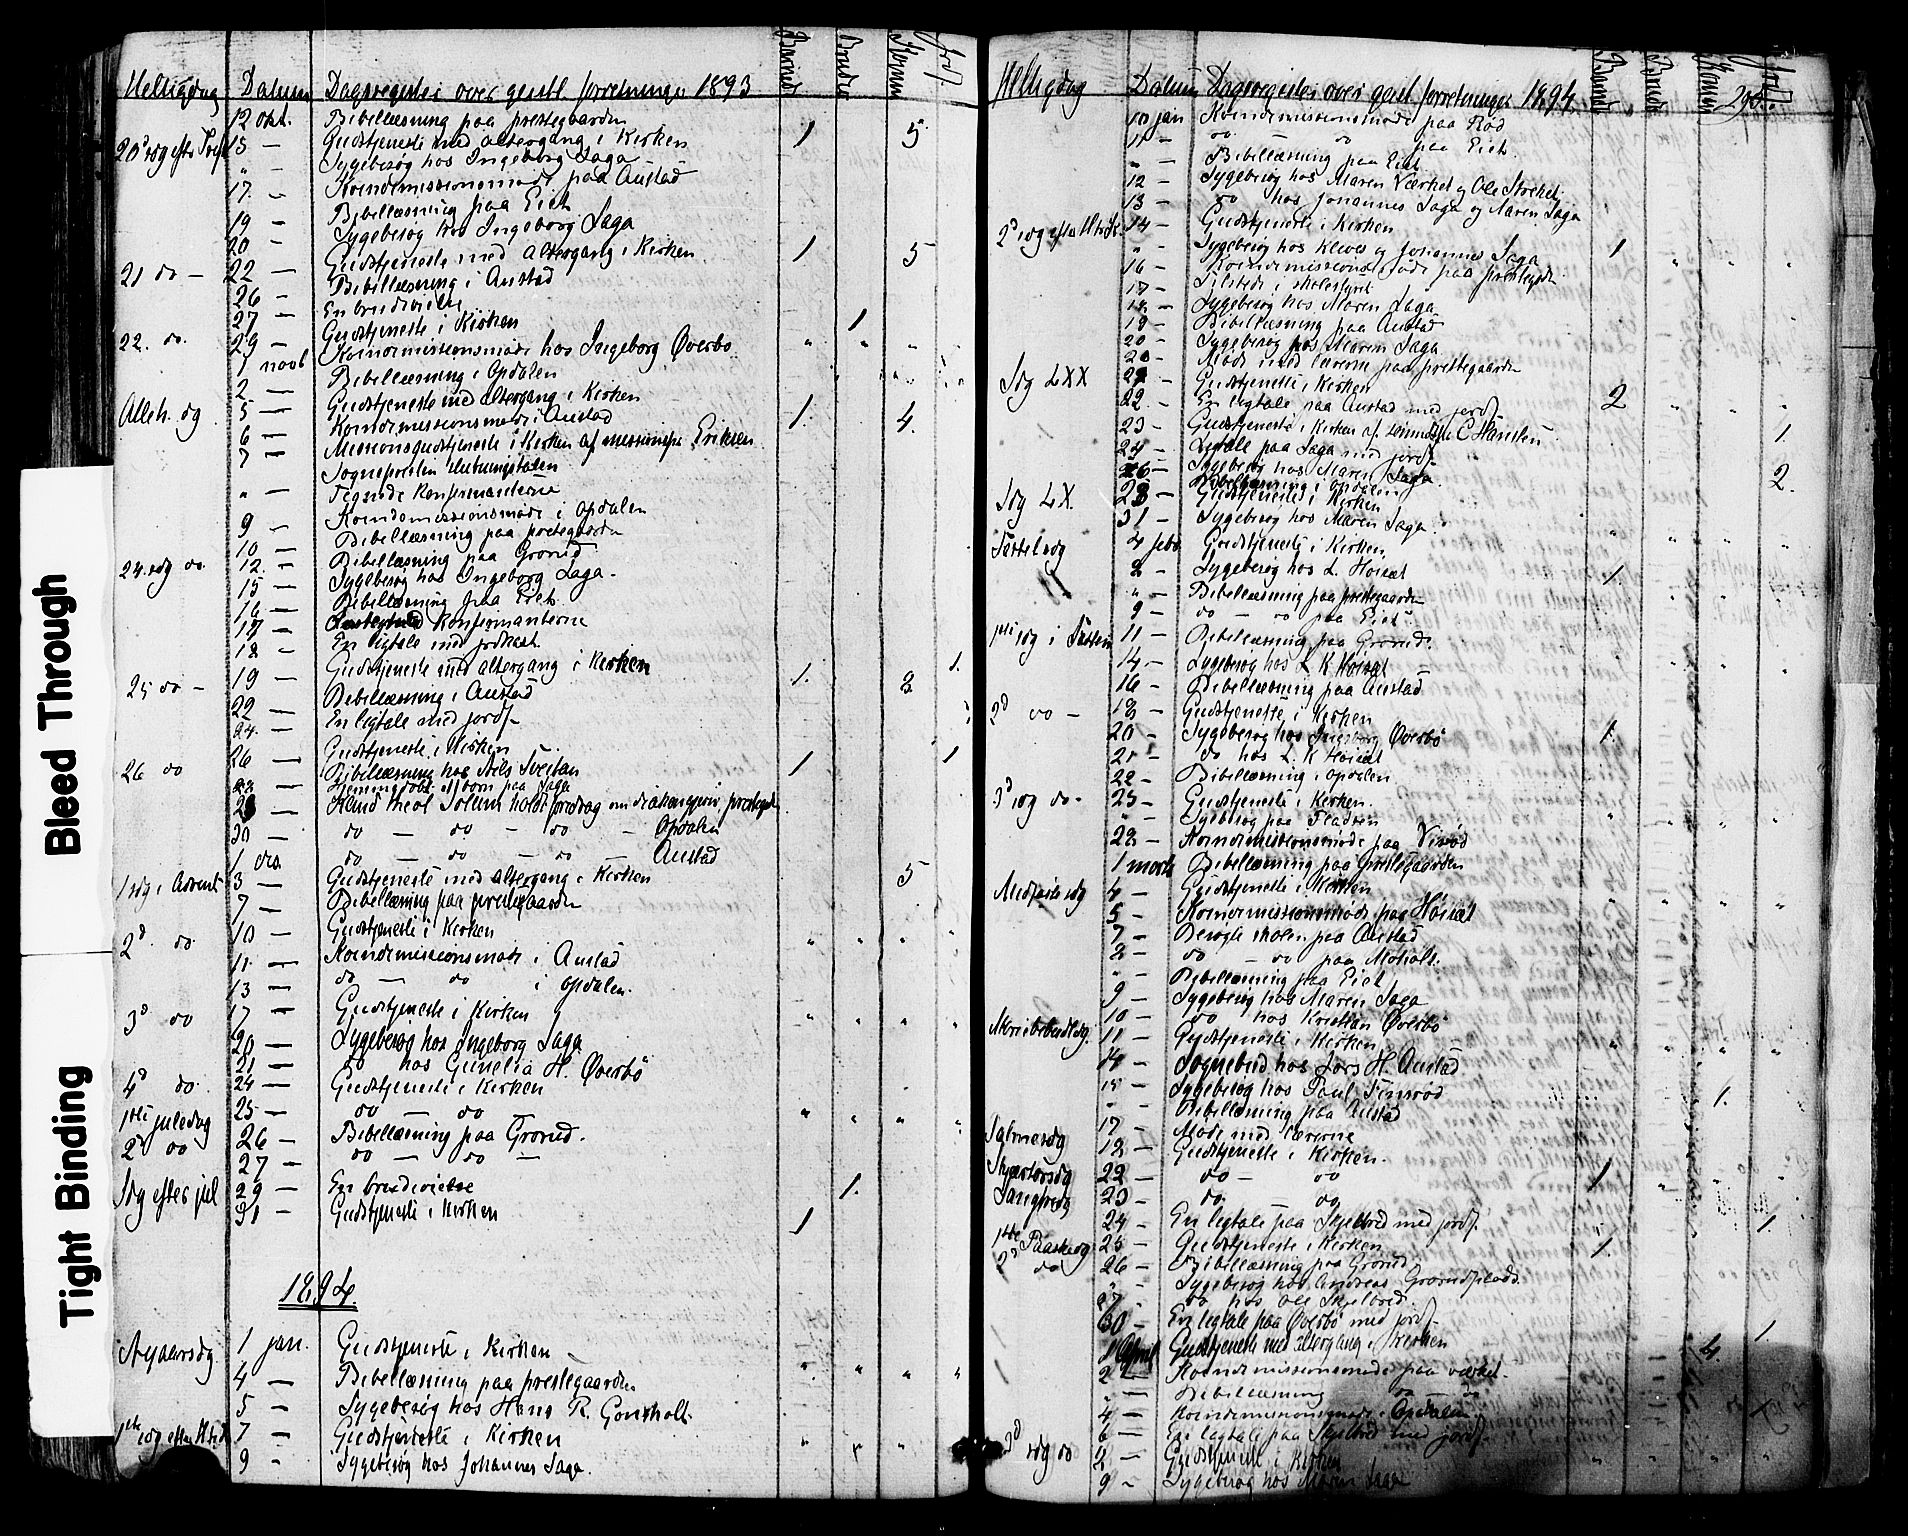 Bleed Through
Tight Binding
Helligdag Datum Dagsregister over geistl. forretninger 1893
12 okt. Bibellæsning paa prestegaarden
15 — Gudstjeneste med altergang i Kirken 1 5
" — Sygebesøg hos Ingeborg Saga
17. — Kvindemissionsmøde paa Austad
Bibellæsning paa Eiet
19 — Sygebesøg hos Ingeborg Saga
20 — Gudstjeneste med altergang i Kirken 1 5
21 do — 22 — Bibellæsning i Austad
26 — En brudevielse
27 — Gudstjeneste i Kirken 1
22. do. 29 — Kvindemissionsmøde hos Ingeborg Øverbø " " "
1 novb Bibellæsning i Opdalen
2 — Gudstjeneste med altergang i Kirken
Alleh. dg 5 — Kvindemissionsmøde i Austad 1. 4.
6 — Missionsgudstjeneste i Kirken af Eriksen
7 —
" — Konfirmanterne
Kvindemissionsmøde i Opdalen
9 — Bibellæsning paa prestegaarden
10 — Bibellæsning paa Grorud
24. sdg do. 12. — Sygebesøg hos Ingeborg Saga.
15 — Bibellæsning paa Eiet
16 — Konfirmanterne
17 — En ligtale med jordkast
18 — Gudstjeneste med altergang i Kirken 1.
25 do — 19 — Bibellæsning i Austad 1. 3.
22 — En ligtale med jordf.
24. —
26 — Gudstjeneste i Kirken 1
26 do Bibellæsning hos Nils Tveitan 1
28 — Hjemmedøbt et barn paa Saga
Kand. theol Solum holdt foredrag om
30 — do — do — do — Opdalen
1 des. do — do — do — Austad
1 sdg i Advent 3 — Gudstjeneste med altergang i Kirken 5
7 — Bibellæsning paa prestegaarden
2d. do. 10 — Gudstjeneste i Kirken " " " "
11 — Kvindemissionsmøde i Austad
13 — do — do i Opdalen.
3d do 17 — Gudstjeneste i Kirken " " " "
20 — Sygebesøg hos Ingeborg Saga
21 — do hos Gunelia H. Øverbø
4d do. 24 — Gudstjeneste i Kirken
1ste juledag 25 — do — do " " " "
2d do 26 — Bibellæsning paa Grorud.
27 — do — do —
29 — En brudevielse 1.
Sdg efter jul 31 — Gudstjeneste i Kirken 1
1894.
Nyaarsdg. 1 jan. Gudstjeneste i Kirken " " " "
4 — Bibellæsning paa prestegaarden
5 — Sygebesøg hos Hans R. Gonsholt
7 — Gudstjeneste i Kirken " " "
9 - Sygebesøg hos Johannes Saga.
Helligdag Datum Dagsregister over geistl. forretninger 1894
10 jan Kvindemissionsmøde paa Rød
11 — do — do paa Eiet.
" — Bibellæsning paa Eiet
12 — Sygebesøg hos Maren Værket og Ole
13 — do hos Johannes Saga og Maren Saga
14 — Gudstjeneste i Kirken
" - Sygebesøg hos og Johannes Saga 1 " " "
16 — Kvindemissionsmøde paa prestegrd
17 — Tilstede i skolestyret
18 — Sygebesøg hos Maren Saga
19 — Bibellæsning paa Austad
20 — Sygebesøg hos Maren Saga
20 — Møde med lærerne paa prestegaarden
Sdg LXX 21 — Gudstjeneste i Kirken
22. — En ligtale paa Austad med jordf. 2 " " "
23 — Gudstjeneste i Kirken af C Hansten 1.
24 — Ligtale paa Saga med jordf.
26 — Sygebesøg hos Maren Saga 2.
Bibellæsning i Opdalen
Sdg LX. 28 — Gudstjeneste i Kirken
31 — Sygebesøg hos Maren Saga " " " "
Fastelsdg 4 febr. Gudstjeneste i Kirken
8 — Sygebesøg hos L. Høisæt 1.
" — Bibellæsning paa prestegaarden
9 — do — do paa Eiet
1ste sdg i Fasten 11 — Bibellæsning paa Grorud.
14 — Sygebesøg hos L K Høisæt
16 — Bibellæsning paa Austad
2d do — 18 — Gudstjeneste i Kirken
20 — Sygebesøg hos Ingeborg Øverbø 1.
21 — do hos L. K Høisæt
22 — Bibellæsning i Opdalen
3d sdg do — 25 — Gudstjeneste i Kirken.
" — Sygebesøg paa Fladsen " " " "
28 — Kvindemissionsmøde paa
1 marts Bibellæsning paa prestegaarden
Midfastesdg 4 — Gudstjeneste i Kirken " " " "
5 — Kvindemissionsmøde paa Høisæt
7 — Besøgte skolen paa Austad
8 — do — do paa
" — Bibellæsning paa Eiet
9 — Sygebesøg hos Maren Saga
10 — do hos Kristian Øverbø
Marie bebudelsdg. 11 — Gudstjeneste i Kirken " " " "
14 — Sognebud hos Lars H. Austad
15 — Sygebesøg hos Paul Finsrød 1.
" — Bibellæsning paa Austad
17 — Møde med lærerne
Palmesdg 18 — Gudstjeneste i Kirken.
Skjærtorsdg 22 — do — do 1 " " "
Langfredg 23 — do. — do
24 — En ligtale paa Skjelbred med jordf. 1.
1ste Paaskedg 25 — Gudstjeneste i Kirken 1
2d do 26 — Bibellæsning paa Grorud
" Sygebesøg hos Andreas Grorudplads.
27. do hos Ole Skjelbred.
30 — En ligtale paa Øverbø med jordf. 1
1 April Gudstjeneste med altergang i Kirken 4.
2 — Kvindemissionsmøde paa værket.
— Bibellæsning do — do
4 — Kvindemissionsmøde i Opdalen
6 — En ligtale paa Skjelbred med jordf.
2d sdg do 8 — Gudstjeneste i Kirken " " " "
9 — Sygebesøg hos Maren Saga